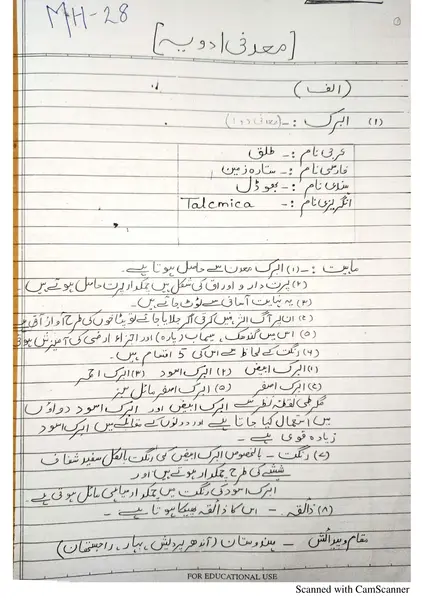 MH-28
[معدنی ادویہ]
(الف)
(۱) ابرک :- (معدنی دوا)
عربی نام :- طلق
فارسی نام :- ستارہ زمین
ہندی نام :- بھوڈل
انگریزی نام :- Talcmica
ماہیت :- (۱) ابرک معدن سے حاصل ہوتا ہے۔
(۲) پرت دار و اوراق کی شکل میں چمکدار پرت حاصل ہوتے ہیں۔
(۳) یہ نہایت آسانی سے ٹوٹ جاتے ہیں۔
(۴) ابرک آگ اثر نہیں کرتی اگر جلایا جائے تو پٹاخوں کی طرح آواز آتی ہے
(۵) اس میں گندھک، سیماب (پارہ) اور اجزاء ارضی کی آمیزش ہوتی
(۶) رنگت کے لحاظ سے اس کی 5 اقسام ہیں۔
(۱) ابرک ابیض (۲) ابرک اسود (۳) ابرک احمر
(۴) ابرک اصفر (۵) ابرک اصفر مائل سبز
مگر طبی نقطہ نظر سے ابرک ابیض اور ابرک اسود دواؤں
میں استعمال کیا جاتا ہے اور دونوں کے مقابلے میں ابرک اسود
زیادہ قوی ہے۔
(۷) رنگت - بالخصوص ابرک ابیض کی رنگت بالکل سفید شفاف
شیشے کی طرح چمکدار ہوتے ہیں اور
ابرک اسود کی رنگت میں چمکدار سیاہی مائل ہوتی ہے۔
(۸) ذائقہ - اس کا ذائقہ پھیکا ہوتا ہے۔
مقام پیدائش - ہندوستان (آندھرپردیش، بہار، راجستھان)
FOR EDUCATIONAL USE
Scanned with CamScanner